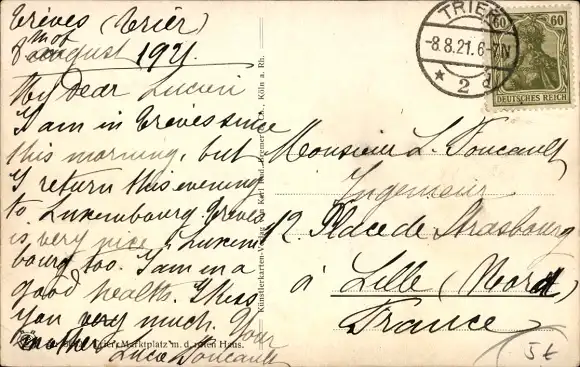 Trèves (Trier)
8th of august 1921.
My dear Lucien
I am in Trèves since
this morning, but
I return this evening
to Luxembourg. Treves
is very nice, Luxem
bourg too. I am in a
good health. I kiss
you very much. Your
mother
Lucie Foucault
Trier, Marktplatz m. d. roten Haus.
Künstlerkarten-Verlag
Köln a. Rh.
TRIER
-8.8.21.6-7N
* 2 d
60 60
DEUTSCHES REICH
Monsieur L. Foucault
Ingenieur
12. Place de Strasbourg
à Lille (Nord)
France
5€